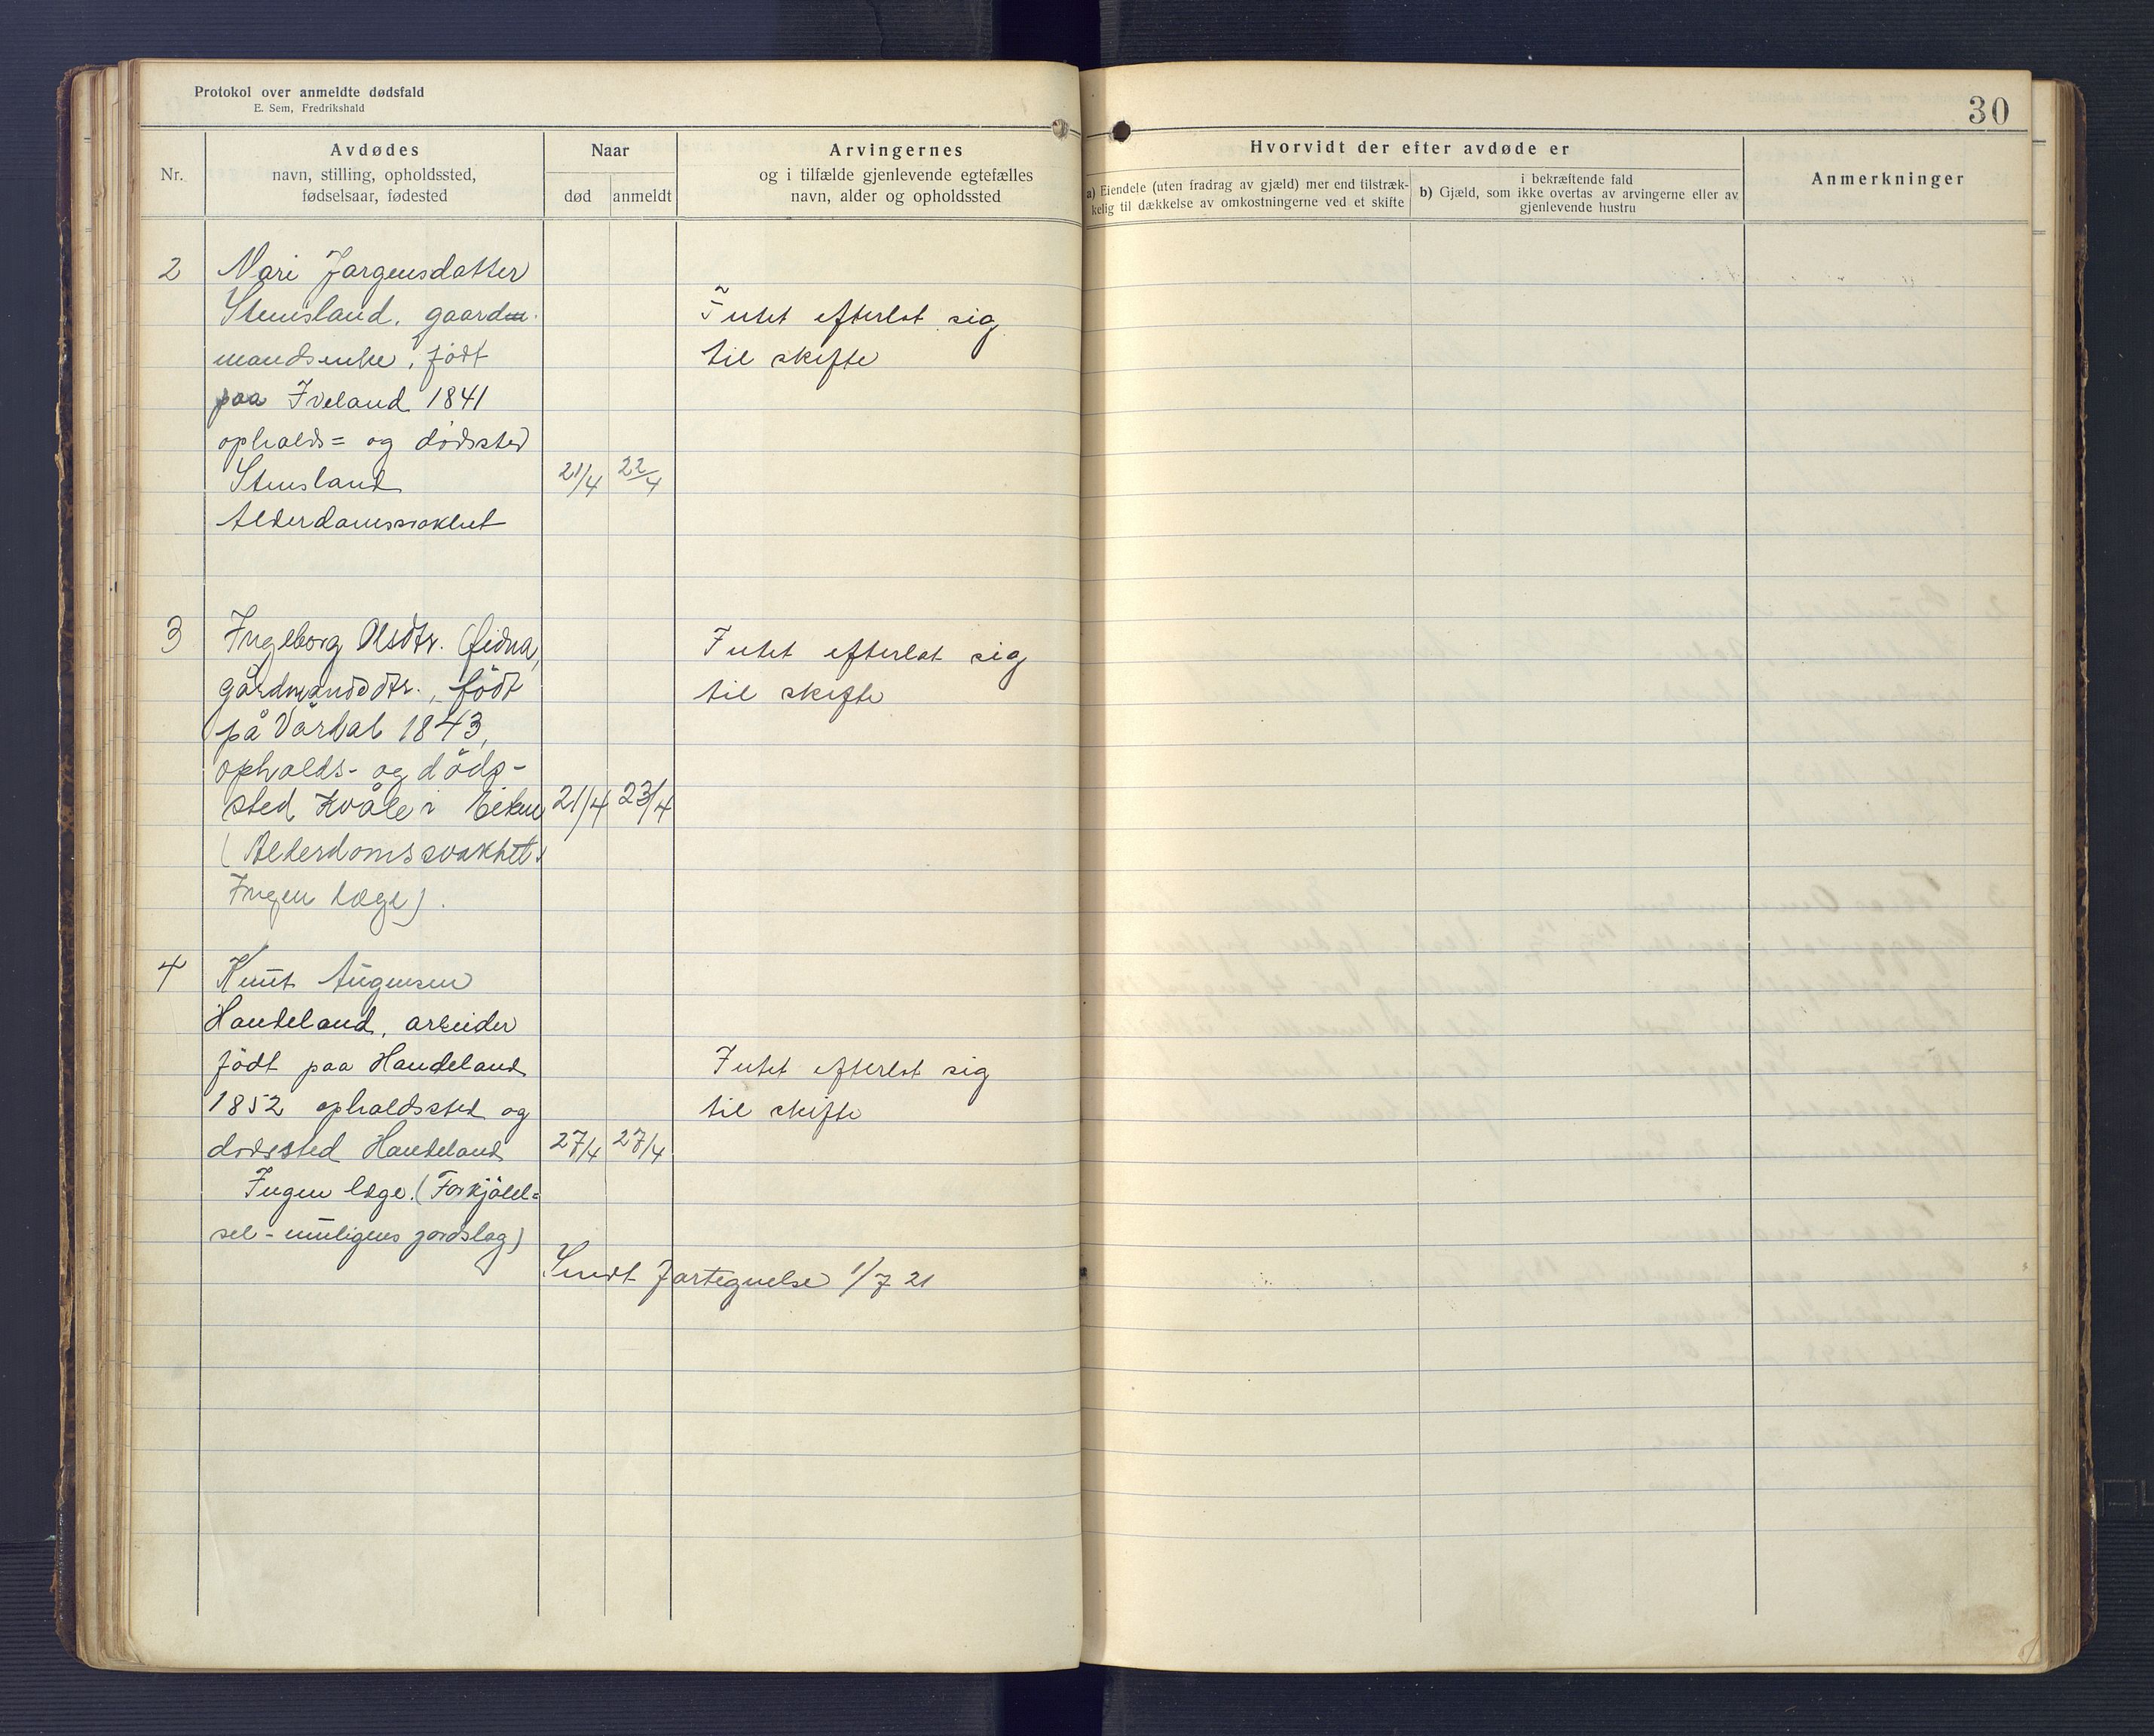 Protokol over anmeldte dødsfald
E. Sem, Fredrikshald
30
Nr.
Avdødes
navn, stilling, opholdssted,
fødselsaar, fødested
Naar
død
anmeldt
Arvingernes
og i tilfælde gjenlevende egtefælles
navn, alder og opholdssted
Hvorvidt der efter avdøde er
a) Eiendele (uten fradrag av gjæld) mer end tilstræk-
kelig til dækkelse av omkostningerne ved et skifte
i bekræftende fald
b) Gjæld, som ikke overtas av arvingerne eller av
gjenlevende hustru
Anmerkninger
2
Mari Jørgensdatter
Stensland, gaard
mandsenke, født
paa Iveland 1841
opholds= og dødssted
Stensland
Alderdomssvakhet
21/4
22/4
Intet efterlot sig
til skifte
3
Ingeborg Olsdtr. Eidna,
gårdmandsdtr., født
på Vårdal 1843,
opholds- og döds-
sted Kvåle i Eiken
(Alderdomssvakhet.
Ingen læge).
21/4
23/4
Intet efterlot sig
til skifte
4
Knut Aügensen
Haudeland, arbeider
født paa Haudeland
1852 opholdssted og
dødssted Haudeland
Ingen læge. (Forkjølel=
sel - muligens jordslag)
27/4
27/4
Intet efterlot sig
til skifte
Sendt fortegnelse 1/7 21